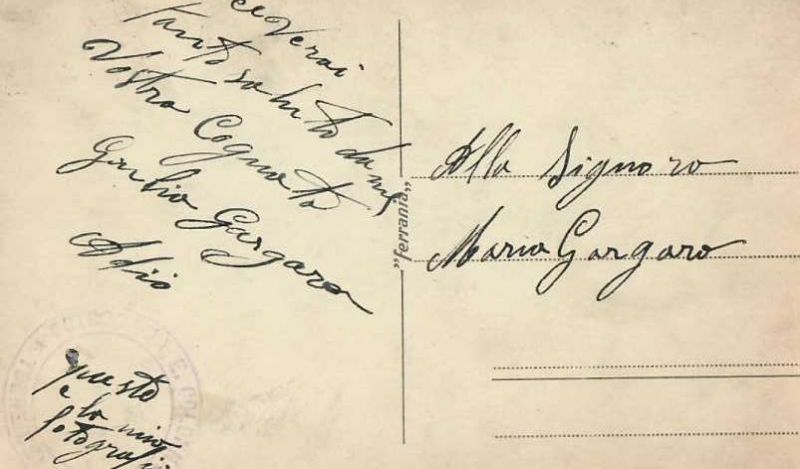 e Verai
Tanto saluto da me
Vostro Cognato
Giulio Gargaro
Adio
questo
e la mia
fotografia
"ferrania"
Alla Signoro
Maria Gargaro